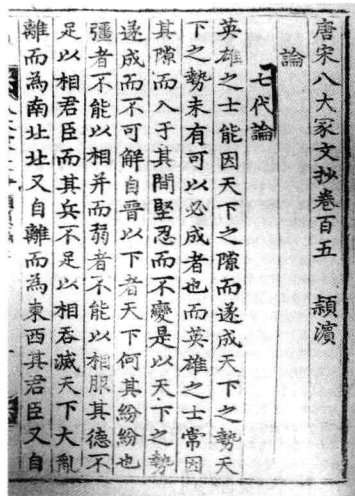 唐宋八大家文抄卷百五　潁濱
論
七代論
英雄之士能因天下之隙而遂成天下之勢天
下之勢未有可以必成者也而英雄之士常因
其隙而入于其間堅忍而不變是以天下之勢
遂成而不可解自晉以下者天下何其紛紛也
彊者不能以相并而弱者不能以相服其德不
足以相君臣而其兵不足以相吞滅天下大亂
離而為南北北又自離而為東西其君臣又自